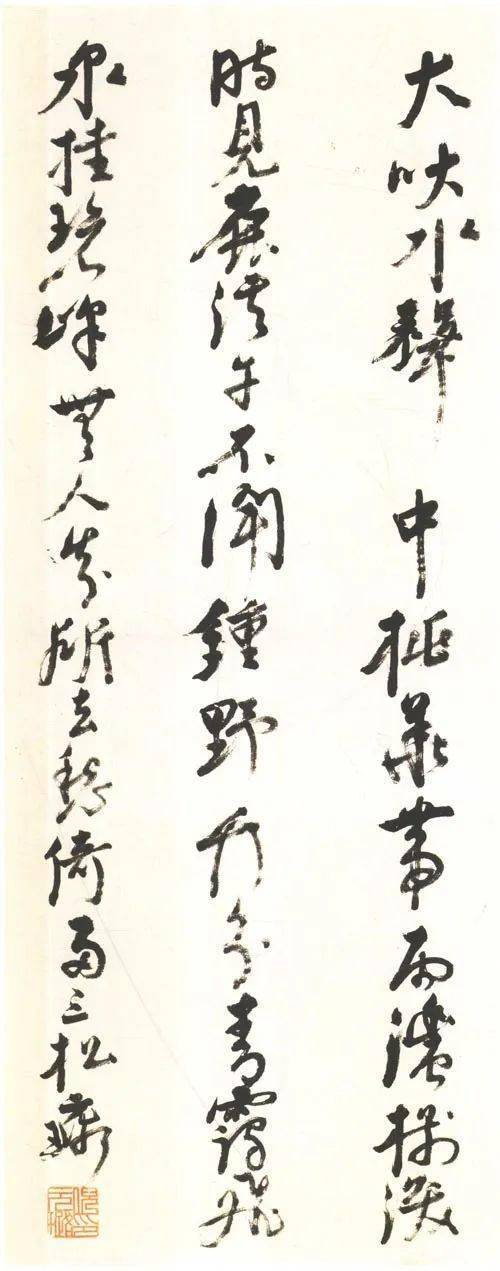 犬吠水聲中桃華帶雨濃樹深
時見鹿溪午不聞鍾野竹分青靄飛
泉挂碧峰無人知所去愁倚兩三松璐